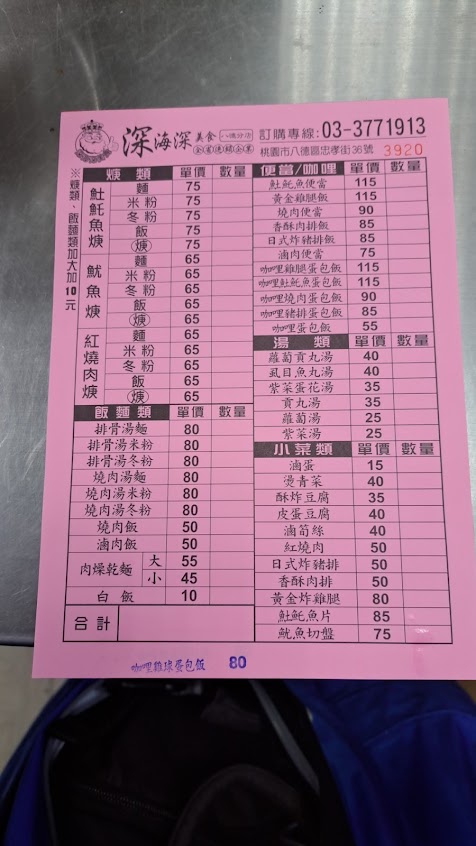 深海深美食 八德分店 訂購專線:03-3771913
全省連鎖企業 桃園市八德區忠孝街36號 3920
※焿類、飯麵類加大加10元
焿類 單價 數量
魠魚焿
麵 75
米粉 75
冬粉 75
飯 75
焿 75
魷魚焿
麵 65
米粉 65
冬粉 65
飯 65
焿 65
紅燒肉焿
麵 65
米粉 65
冬粉 65
飯 65
焿 65
飯麵類 單價 數量
排骨湯麵 80
排骨湯米粉 80
排骨湯冬粉 80
燒肉湯麵 80
燒肉湯米粉 80
燒肉湯冬粉 80
燒肉飯 50
滷肉飯 50
肉燥乾麵 大 55
小 45
白飯 10
合計
便當/咖哩 單價 數量
魠魚便當 115
黃金雞腿飯 115
燒肉便當 90
香酥肉排飯 85
日式炸豬排飯 85
滷肉便當 75
咖哩雞腿蛋包飯 115
咖哩魠魚蛋包飯 115
咖哩燒肉蛋包飯 90
咖哩豬排蛋包飯 85
咖哩蛋包飯 55
湯類 單價 數量
蘿蔔貢丸湯 40
虱目魚丸湯 40
紫菜蛋花湯 35
貢丸湯 35
蘿蔔湯 25
紫菜湯 25
小菜類 單價 數量
滷蛋 15
燙青菜 40
酥炸豆腐 35
皮蛋豆腐 40
滷筍絲 40
紅燒肉 50
日式炸豬排 50
香酥肉排 50
黃金炸雞腿 80
魠魚片 85
魷魚切盤 75
咖哩雞球蛋包飯 80